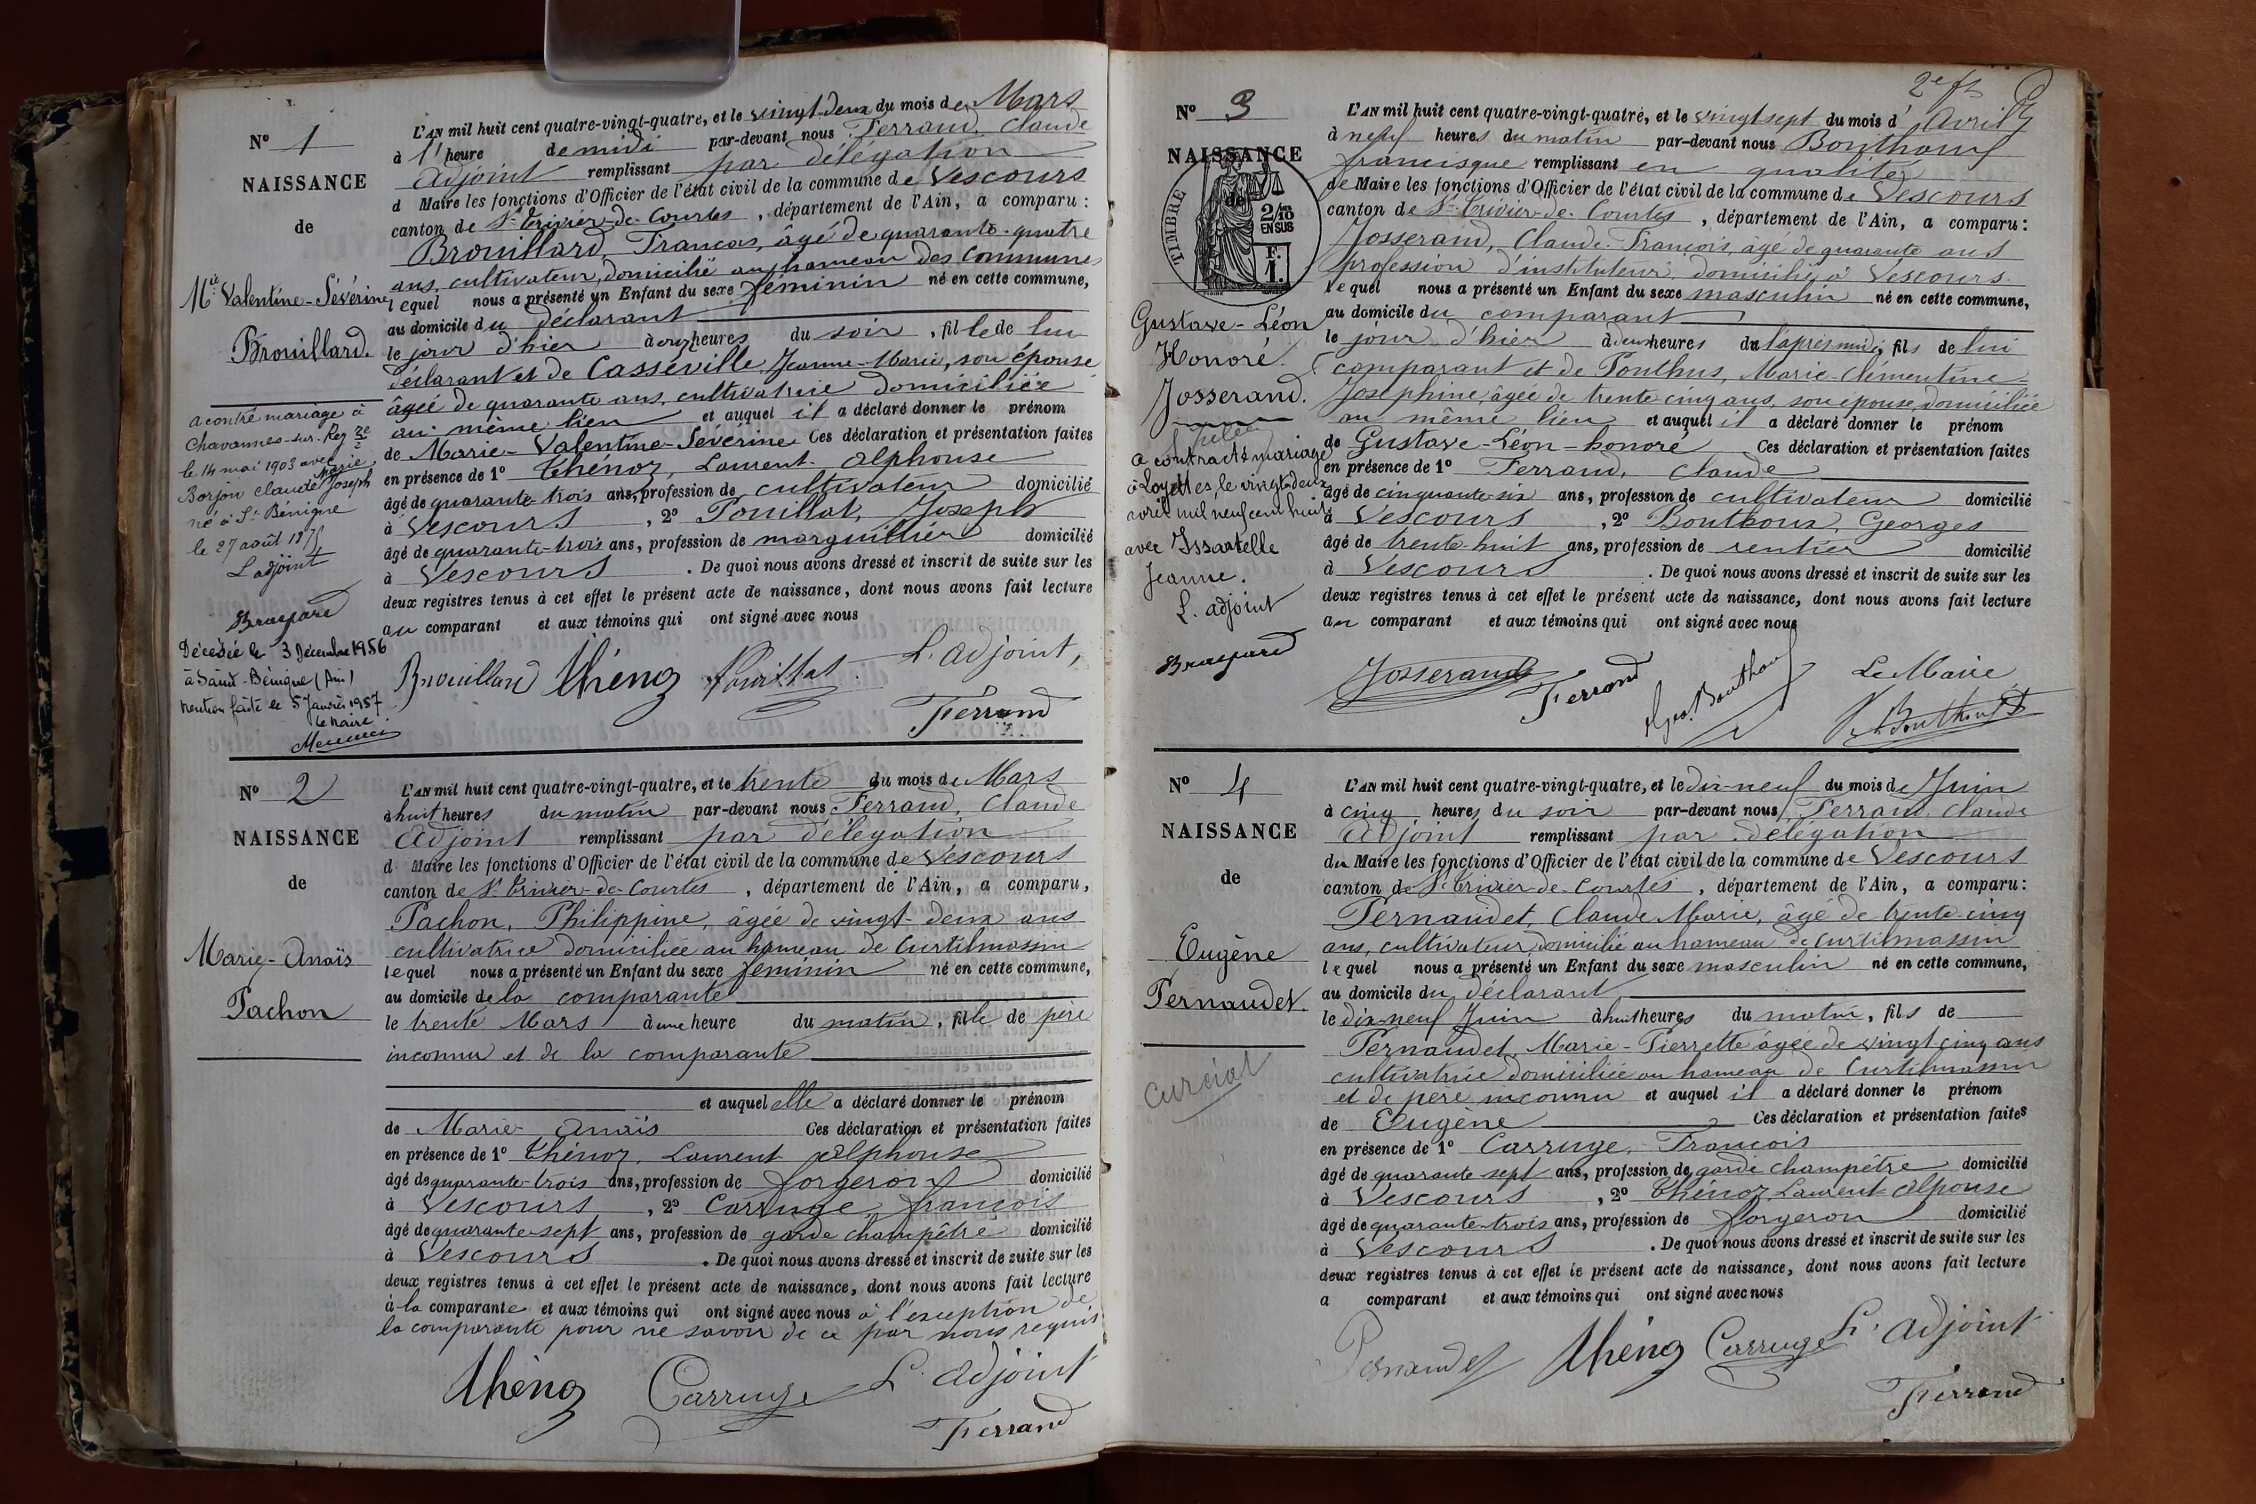 N° 1
NAISSANCE
de
Mie Valentine-Sévérine
Brouillard.
a contré mariage à
Chavannes-sur-Reyze
le 14 mai 1903 avec
Borjon Claude Marie Joseph
né à St Bénigne
le 27 août 187
L'adjoint
Décédée le 3 Décembre 1956
à Saint-Bénigne (Ain)
Mention faite le 5 Janvier 1957
Le Maire
L'AN mil huit cent quatre-vingt-quatre, et le vingt-deux du mois de Mars
à 1' heure de midi par-devant nous Ferrand, Claude
Adjoint remplissant par délégation
d Maire les fonctions d'Officier de l'état civil de la commune de Vescours
canton de St Trivier-de-Courtes, département de l'Ain, a comparu :
Brouillard, François, âgé de quarante-quatre
ans, cultivateur, domicilié au hameau des Communes
lequel nous a présenté un Enfant du sexe féminin né en cette commune,
au domicile du déclarant
le jour d'hier à onze heures du soir, fille de lui
déclarant et de Casséville, Jeanne-Marie, son épouse
âgée de quarante ans, cultivatrice domiciliée
au même lieu et auquel il a déclaré donner le prénom
de Marie-Valentine-Sévérine Ces déclaration et présentation faites
en présence de 1° Thénoz, Laurent-Alphonse
âgé de quarante-trois ans, profession de cultivateur domicilié
à Vescours, 2° Pouillat, Joseph
âgé de quarante-trois ans, profession de marguillier domicilié
à Vescours. De quoi nous avons dressé et inscrit de suite sur les
deux registres tenus à cet effet le présent acte de naissance, dont nous avons fait lecture
au comparant et aux témoins qui ont signé avec nous
Brouillard Thénoz Pouillat L'adjoint,
Ferrand
N° 2
NAISSANCE
de
Marie-Anaïs
Pachon
L'AN mil huit cent quatre-vingt-quatre, et le trente du mois de Mars
à huit heures du matin par-devant nous Ferrand, Claude
Adjoint remplissant par délégation
d Maire les fonctions d'Officier de l'état civil de la commune de Vescours
canton de St Trivier-de-Courtes, département de l'Ain, a comparu,
Pachon, Philippine, âgée de vingt-deux ans
cultivatrice domiciliée au hameau de Curtilmassin
lequel nous a présenté un Enfant du sexe féminin né en cette commune,
au domicile de la comparante
le trente Mars à une heure du matin, fille de père
inconnu et de la comparante
et auquel elle a déclaré donner le prénom
de Marie-Anaïs Ces déclaration et présentation faites
en présence de 1° Thénoz, Laurent Alphonse
âgé de quarante-trois ans, profession de forgeron domicilié
à Vescours, 2° Carruge, françois
âgé de quarante-sept ans, profession de garde champêtre domicilié
à Vescours. De quoi nous avons dressé et inscrit de suite sur les
deux registres tenus à cet effet le présent acte de naissance, dont nous avons fait lecture
à la comparante et aux témoins qui ont signé avec nous à l'exception de
la comparante pour ne savoir de ce par nous requis
Thénoz Carruge L'adjoint
Ferrand
2e ft
N° 3
NAISSANCE
de
TIMBRE
2/10
EN SUS
F.
1.
Gustave-Léon
Honoré.
Josserand.
a contracté mariage
à Loyettes, le vingt-deux
avril mil neuf cent huit
avec Issartelle
Jeanne.
L. adjoint
L'AN mil huit cent quatre-vingt-quatre, et le vingt sept du mois d' Avril
à neuf heures du matin par-devant nous Bouthoux
francisque remplissant en qualité
de Maire les fonctions d'Officier de l'état civil de la commune de Vescours
canton de St-Trivier-de-Courtes, département de l'Ain, a comparu :
Josserand, Claude-François, âgé de quarante ans
profession d'instituteur, domicilié à Vescours.
lequel nous a présenté un Enfant du sexe masculin né en cette commune,
au domicile du comparant
le jour d'hier à deux heures du l'après midi, fils de lui
comparant et de Ponthus, Marie-Clémentine-
Joséphine, âgée de trente cinq ans, son épouse, domiciliée
au même lieu et auquel il a déclaré donner le prénom
de Gustave-Léon-honoré Ces déclaration et présentation faites
en présence de 1° Ferrand, Claude
âgé de cinquante-six ans, profession de cultivateur domicilié
à Vescours, 2° Bouthoux, Georges
âgé de trente-huit ans, profession de rentier domicilié
à Vescours. De quoi nous avons dressé et inscrit de suite sur les
deux registres tenus à cet effet le présent acte de naissance, dont nous avons fait lecture
au comparant et aux témoins qui ont signé avec nous
Josserand Ferrand Geo. Bouthoux Le Maire
Bouthoux
N° 4
NAISSANCE
de
Eugène
Pernaudet.
Curciat
L'AN mil huit cent quatre-vingt-quatre, et le dix-neuf du mois de Juin
à cinq heures du soir par-devant nous Ferrand, Claude
Adjoint remplissant par délégation
du Maire les fonctions d'Officier de l'état civil de la commune de Vescours
canton de St-Trivier-de-Courtes, département de l'Ain, a comparu :
Pernaudet, Claude Marie, âgé de trente-cinq
ans, cultivateur, domicilié au hameau de Curtilmassin
lequel nous a présenté un Enfant du sexe masculin né en cette commune,
au domicile du déclarant
le dix-neuf Juin à huit heures du matin, fils de
Pernaudet, Marie-Pierrette âgée de vingt-cinq ans
cultivatrice domiciliée au hameau de Curtilmassin
et de père inconnu et auquel il a déclaré donner le prénom
de Eugène Ces déclaration et présentation faites
en présence de 1° Carruge, François
âgé de quarante sept ans, profession de garde champêtre domicilié
à Vescours, 2° Thénoz Laurent Alponse
âgé de quarante-trois ans, profession de forgeron domicilié
à Vescours. De quoi nous avons dressé et inscrit de suite sur les
deux registres tenus à cet effet le présent acte de naissance, dont nous avons fait lecture
a comparant et aux témoins qui ont signé avec nous
Pernaudet Thénoz Carruge L'adjoint
Ferrand